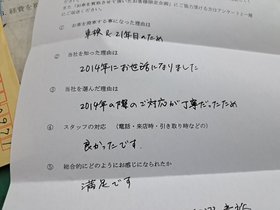 ① お車を廃車する事になった理由は
車検&21年目のため
② 当社を知った理由は
2014年にお世話になりました
③ 当社を選んだ理由は
2014年の際のご対応が丁寧だったため
④ スタッフの対応 (電話・来店時・引き取り時などの)
良かったです。
⑤ 総合的にどのようにお感じになられたか
満足です